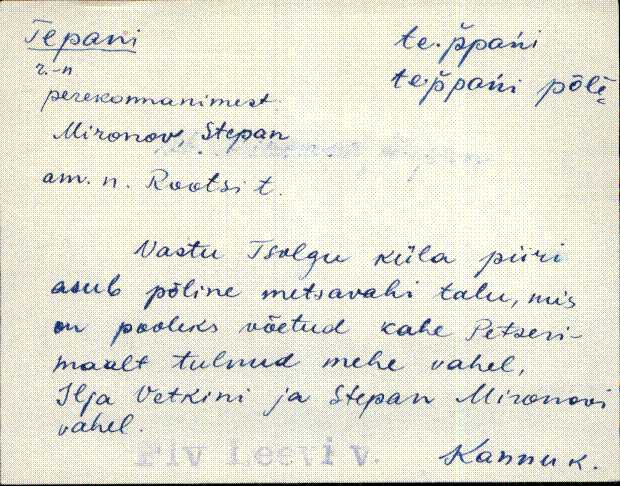 Tepani te·p̌pańi
r.-n te·p̌pańi põlĕ
perekonnanimest.
Mironov, Stepan
am. n. Rootsi t.
Vastu Tsolgu küla piiri
asub põline metsavahi talu, mis
on pooleks võetud kahe Petseri-
maalt tulnud mehe vahel,
Ilja Vetkini ja Stepan Mironovi
vahel.
Plv Leevi v. Kannuk.